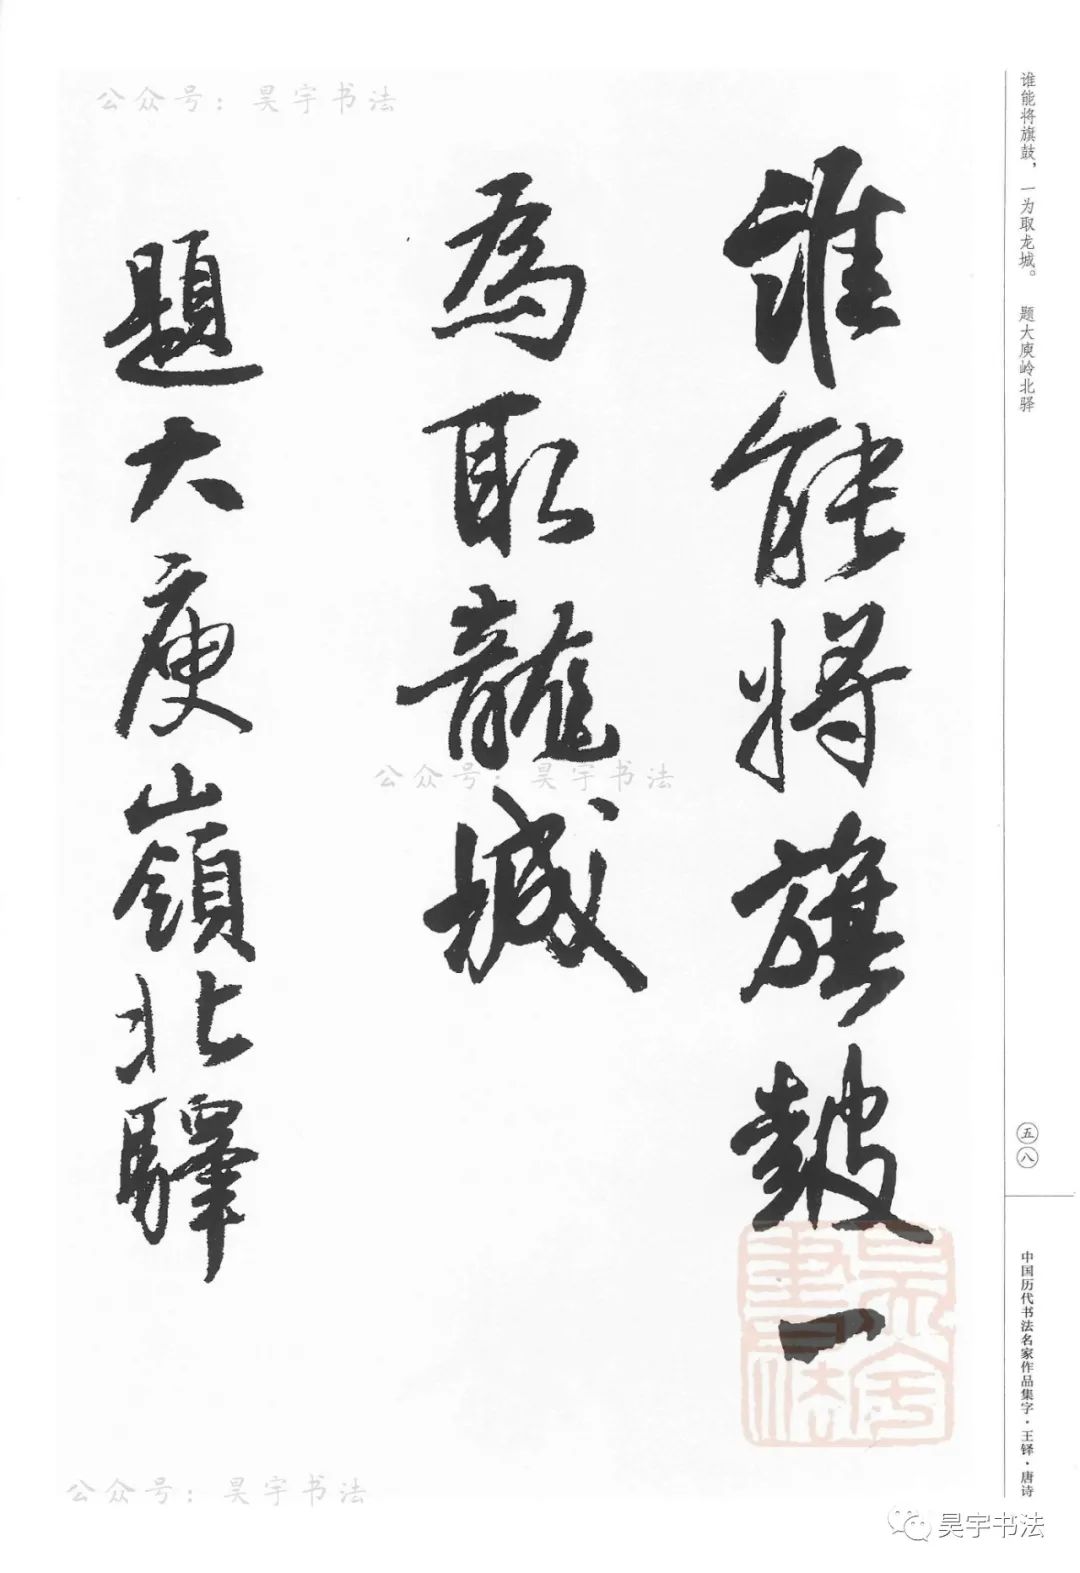 公众号：昊宇书法
谁能将旗鼓，一为取龙城。 题大庾岭北驿
誰能將旗鼓一
為取龍城
題大庾嶺北驛
公众号：昊宇书法
五八
昊宇書法
中国历代书法名家作品集字·王铎·唐诗
公众号：昊宇书法
昊宇书法